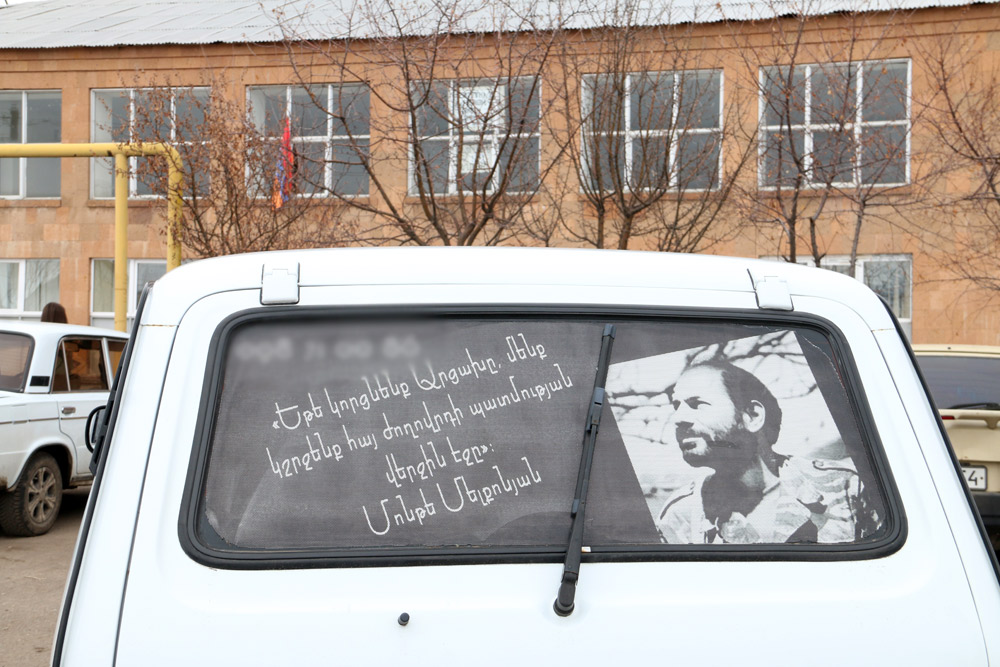 «Եթե կորցնենք Արցախը, մենք
կշրջենք հայ ժողովրդի պատմության
վերջին էջը»:
Մոնթե Մելքոնյան